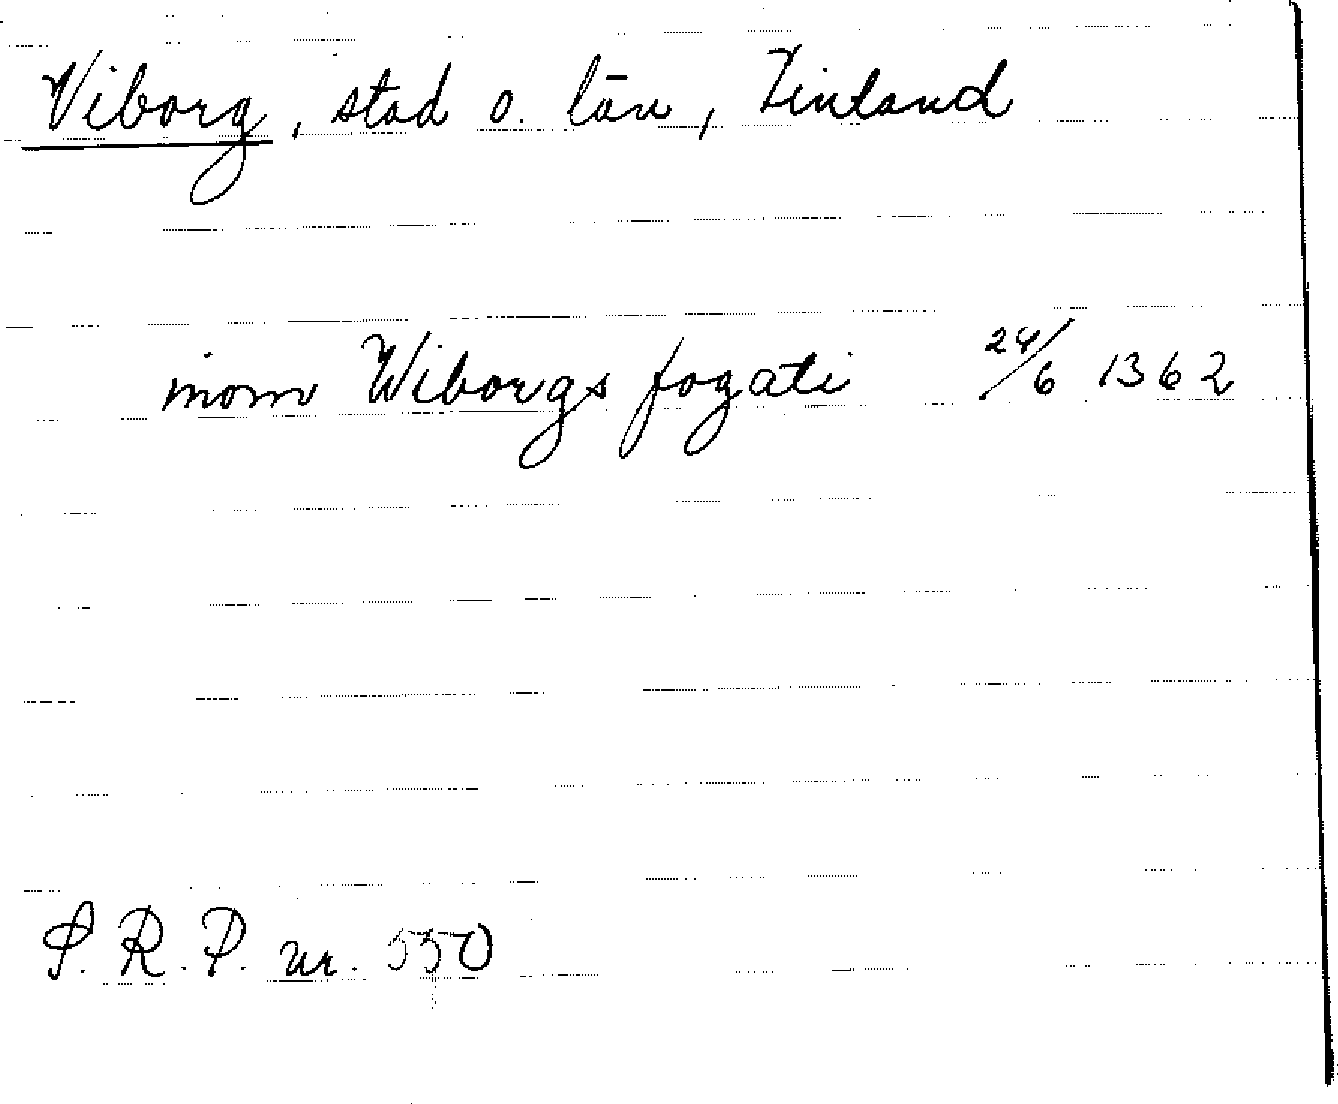 Viborg, stad o. län, Finland
inom Wiborgs fogati 24/6 1362
S.R.P. nr. 550